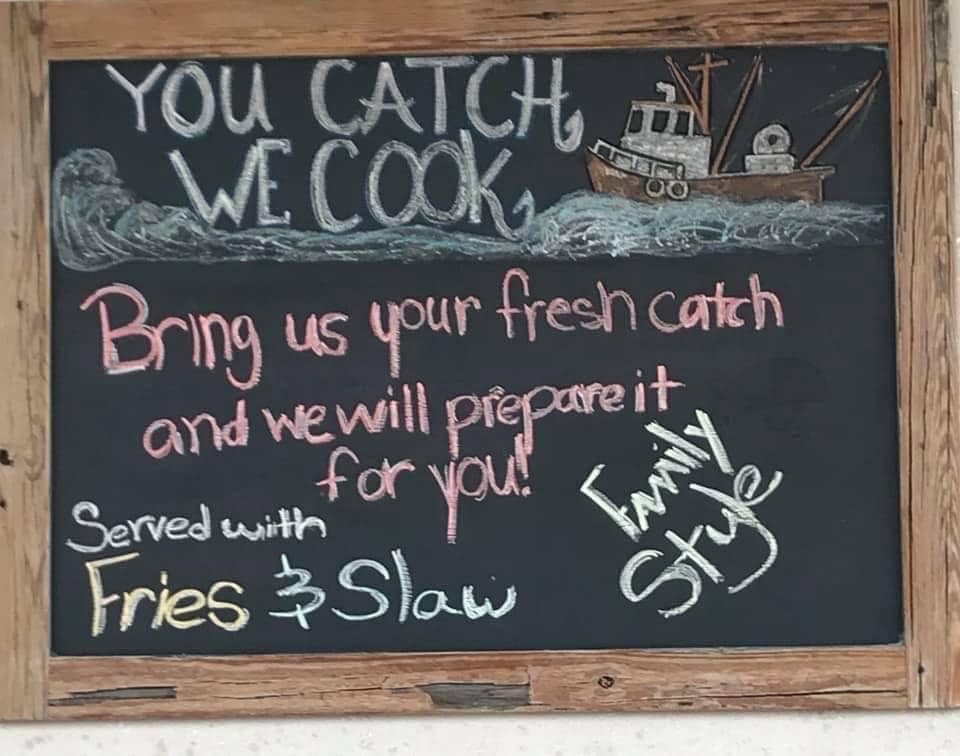 YOU CATCH,
WE COOK,
Bring us your fresh catch
and we will prepare it
for you!
Family
Style
Served with
Fries & Slaw